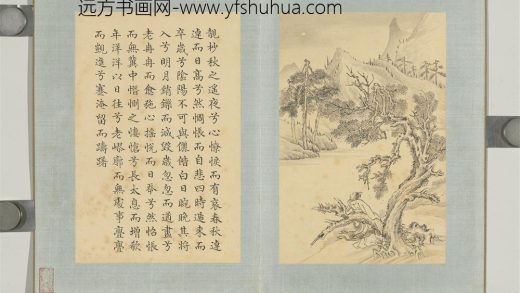 远方书画网-www.yfshuhua.com
靚杪秋之遙夜兮心繚悷而有哀春秋逴
逴而日高兮然惆悵而自悲四時遞來而
卒歲兮陰陽不可與儷偕白日晼晚其將
入兮明月銷鑠而減毀歲忽忽而遒盡兮
老冉冉而愈弛心搖悅而日幸兮然怊悵
而無冀中憯惻之悽愴兮長太息而增欷
年洋洋以日往兮老嵺廓而無處事亹亹
而覬進兮蹇淹留而躊躇